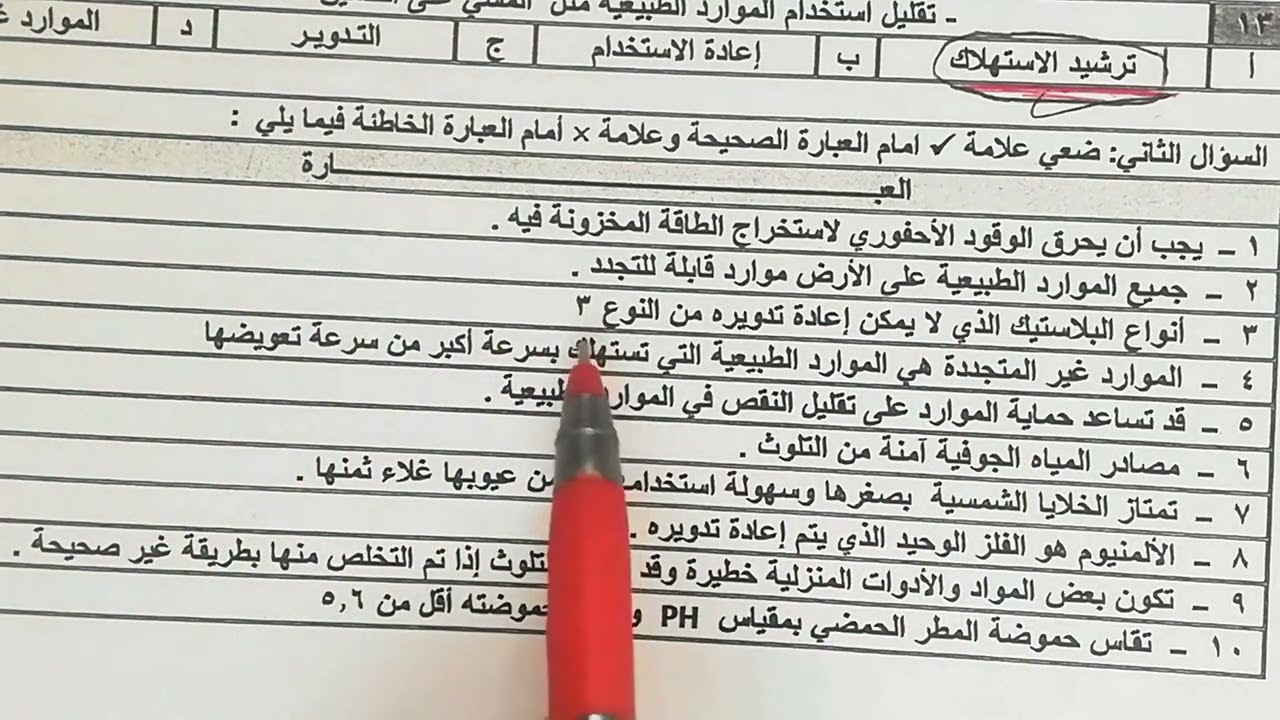 ١٣ ـ تقليل استخدام الموارد الطبيعية مثل المشي على
أ ترشيد الاستهلاك ب إعادة الاستخدام ج التدوير د الموارد
السؤال الثاني: ضعي علامة ✓ امام العبارة الصحيحة وعلامة × أمام العبارة الخاطئة فيما يلي :
العبــــــــارة
١ ـ يجب أن يحرق الوقود الأحفوري لاستخراج الطاقة المخزونة فيه .
٢ ـ جميع الموارد الطبيعية على الأرض موارد قابلة للتجدد .
٣ ـ أنواع البلاستيك الذي لا يمكن إعادة تدويره من النوع ٣
٤ ـ الموارد غير المتجددة هي الموارد الطبيعية التي تستهلك بسرعة أكبر من سرعة تعويضها
٥ ـ قد تساعد حماية الموارد على تقليل النقص في الموارد الطبيعية .
٦ ـ مصادر المياه الجوفية آمنة من التلوث .
٧ ـ تمتاز الخلايا الشمسية بصغرها وسهولة من عيوبها غلاء ثمنها .
٨ ـ الألمنيوم هو الفلز الوحيد الذي يتم إعادة تدويره .
٩ ـ تكون بعض المواد والأدوات المنزلية خطيرة وقد التلوث إذا تم التخلص منها بطريقة غير صحيحة .
١٠ ـ تقاس حموضة المطر الحمضي بمقياس PH حموضته أقل من ٥,٦